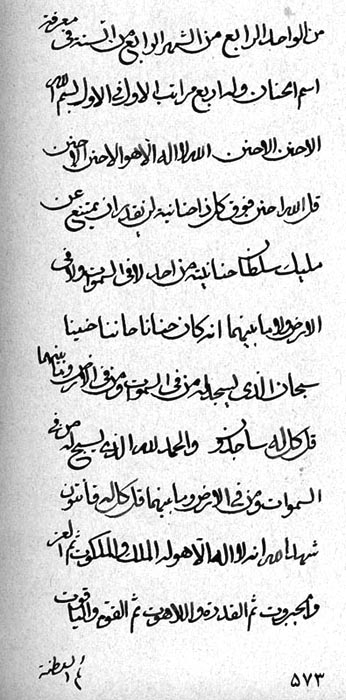 من الواحد الرابع من الشهر الرابع من السنة فی معرفة
اسم الحنان وله اربع مراتب الاول فی الاول بسم الله
الاحنن الاحنن الله لا اله الا هو الاحنن الاحنن
قل الله احنن فوق كل ذا احنانية لن يقدر ان يمتنع عن
مليك سلطان حنانيته من احد لا فی السموات ولا فی
الارض ولا ما بينهما انه كان حنانا حاننا حنينا
سبحان الذی يسجد له من فی السموات ومن فی الارض وما بينهما
قل كل له ساجدون والحمد لله الذی يسبح له من فی
السموات ومن فی الارض وما بينهما قل كل له قانتون
شهد الله انه لا اله الا هو له الملك والملكوت ثم العز
والجبروت ثم القدرة واللاهوت ثم القوة والياقوت
ثم السلطنة
۵۷۳